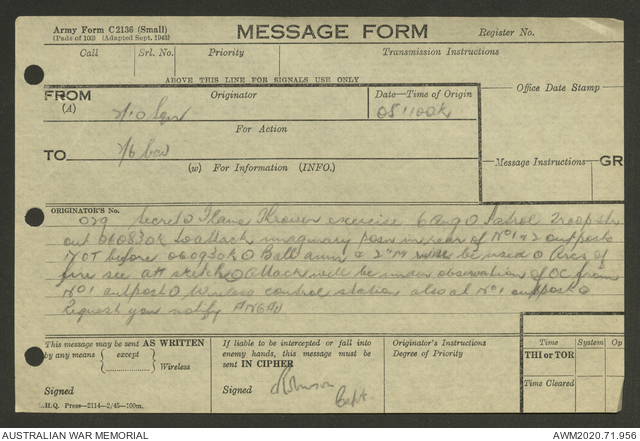 Army Form C2136 (Small)
(Pads of 100) (Adapted Sept. 1943)
MESSAGE FORM
Register No.
Call Srl. No. Priority Transmission Instructions
ABOVE THIS LINE FOR SIGNALS USE ONLY
FROM
(A)
Originator
Date—Time of Origin
Office Date Stamp
051100K
For Action
TO
(w) For Information (INFO.)
Message Instructions GR
ORIGINATOR'S No.
029 Secret O Flame Thrower exercise 6 Aug O Patrol Troop
out 060830K to attack imaginary posn in rear of No 1 & 2 outposts
NOT before 060930K O Ball ammn & 2"M will be used O Arcs of
fire see att sketch O attack will be under observation of OC from
No 1 outpost O Wireless control station also at No 1 outpost O
Request you notify ANGAU
This message may be sent AS WRITTEN
by any means except
Wireless
Signed
If liable to be intercepted or fall into
enemy hands, this message must be
sent IN CIPHER
Signed Capt.
Originator's Instructions
Degree of Priority
Time System Op
THI or TOR
Time Cleared
G.H.Q. Press—2114—2/45—100m.
AUSTRALIAN WAR MEMORIAL AWM2020.71.956